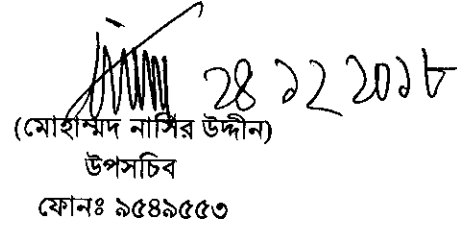 ২৪ ১২ ২০১৮
(মোহাম্মদ নাসির উদ্দীন)
উপসচিব
ফোনঃ ৯৫৪৯৫৫৩